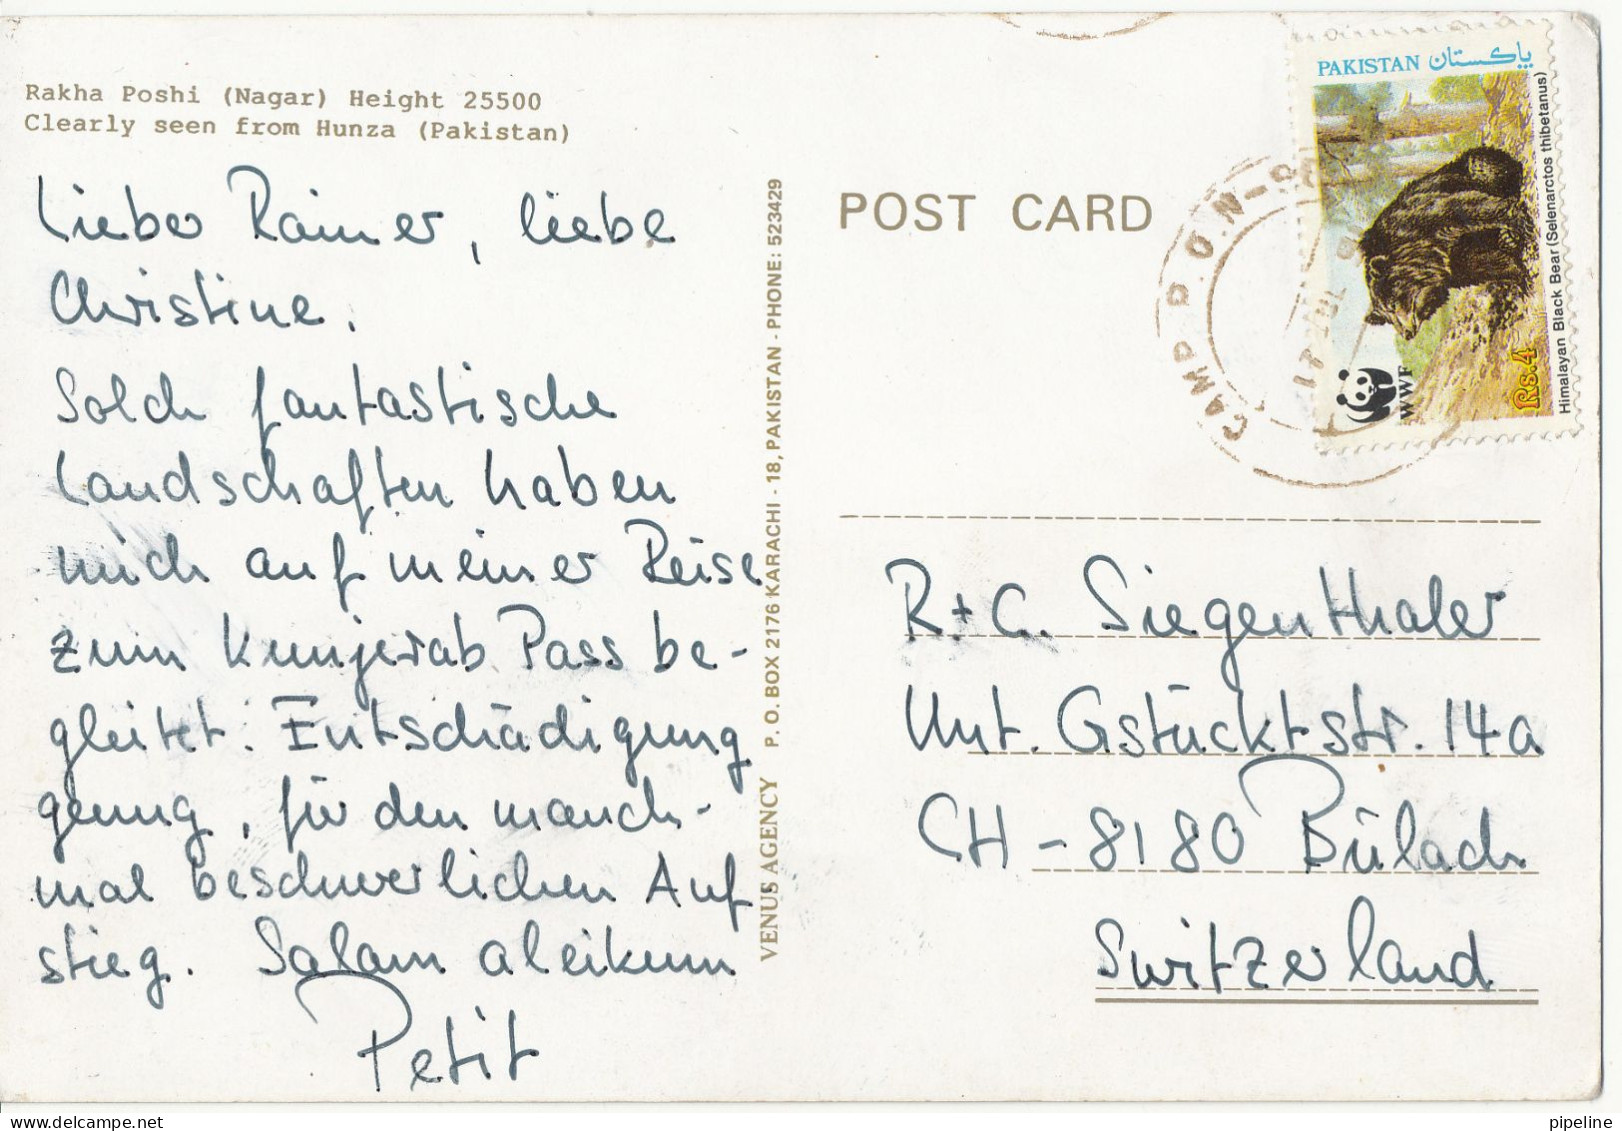 Rakha Poshi (Nagar) Height 25500
Clearly seen from Hunza (Pakistan)
Lieber Rainer, liebe
Christine.
Solch fantastische
Landschaften haben
mich auf meiner Reise
zum Kunjerab Pass be-
gleitet. Entschädigung
genug, für den manch-
mal beschwerlichen Auf
stieg. Salam aleikum
Petit
VENUS AGENCY P. O. BOX 2176 KARACHI - 18, PAKISTAN - PHONE: 523429
POST CARD
PAKISTAN پاکستان
Himalayan Black Bear (Selenarctos thibetanus)
Rs.4
WWF
CAMP P.O.N-
R+C. Siegenthaler
Unt. Gstücktstr. 14a
CH-8180 Bülach
Switzerland
pipeline